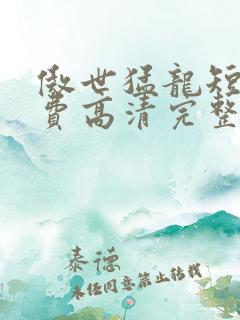 傲世猛龍短
費高清完整
泰德
未经同意禁止转载